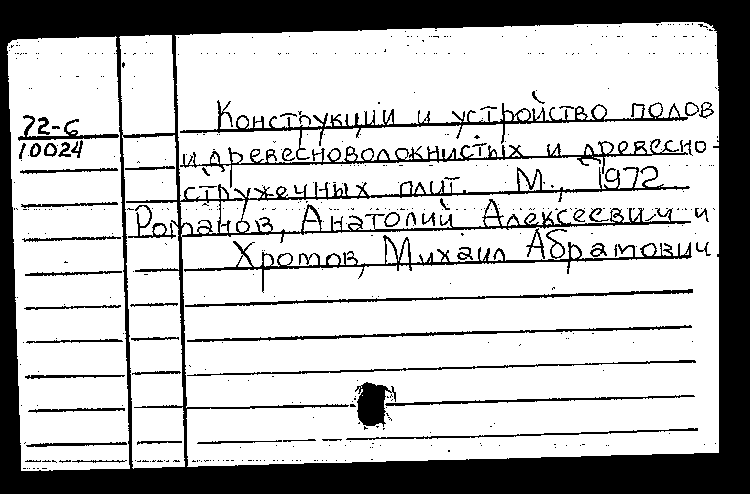 Конструкции и устройство полов
72-6
10024
и древесноволокнистых и древесно-
стружечных плит. М., 1972
Романов, Анатолий Алексеевич и
Хромов, Михаил Абрамович.